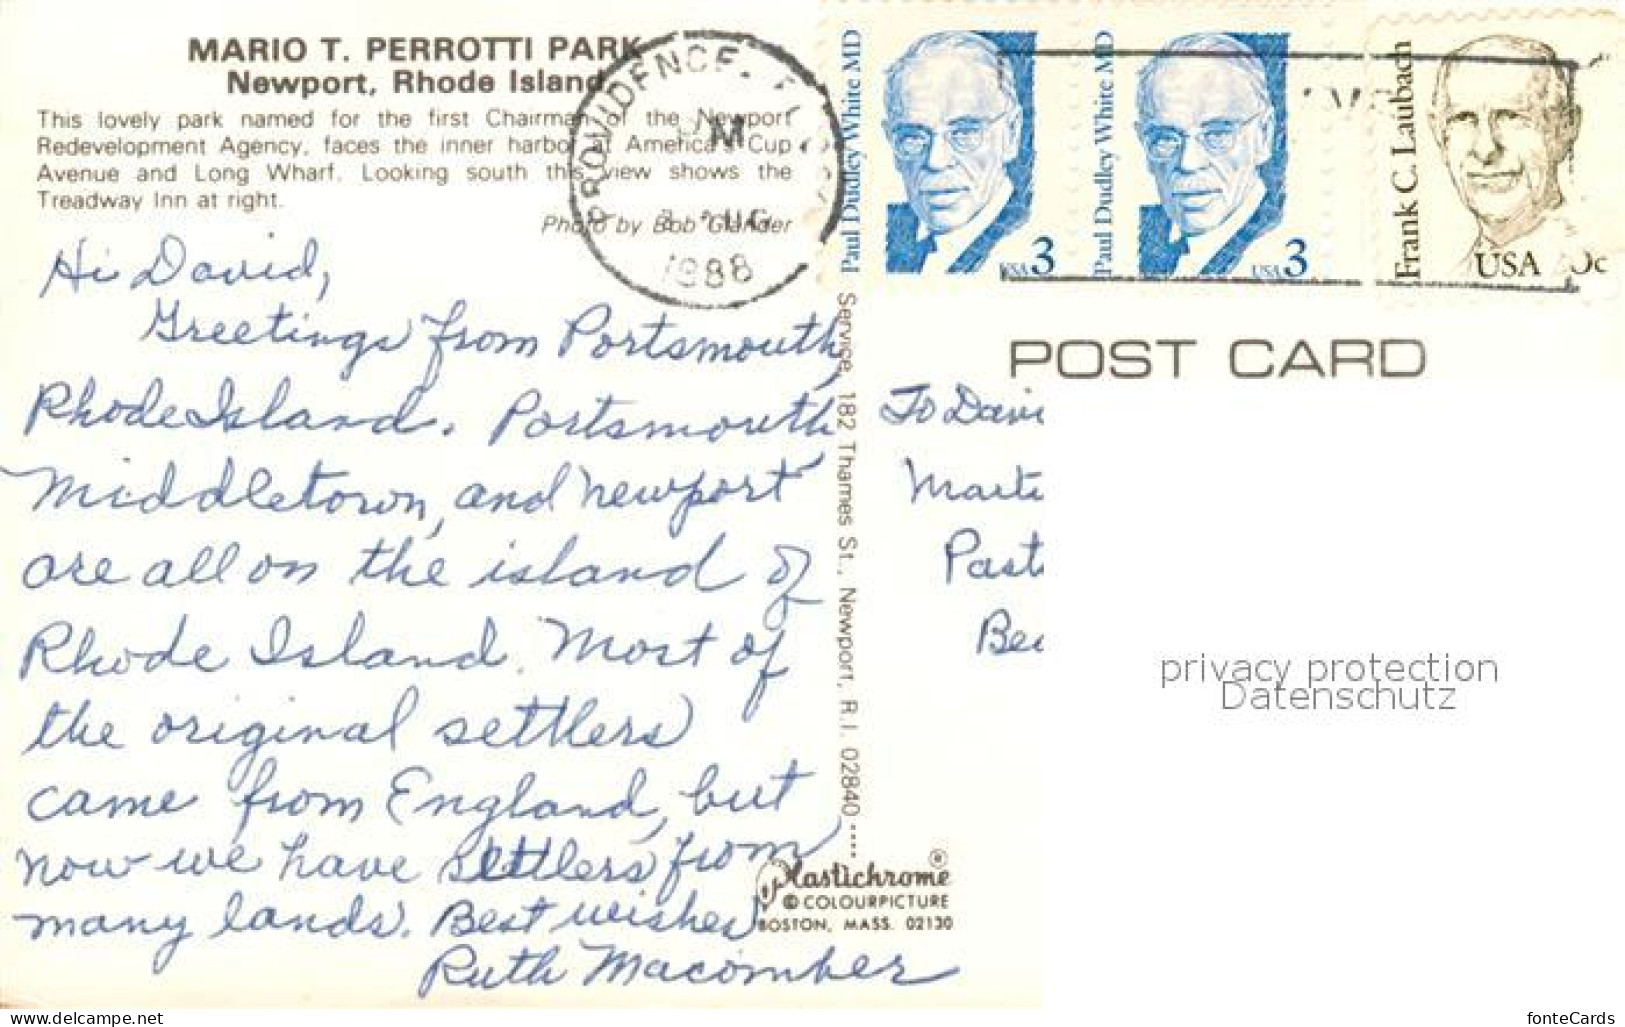 MARIO T. PERROTTI PARK
Newport, Rhode Island
This lovely park named for the first Chairman of the Newport
Redevelopment Agency, faces the inner harbor at America's Cup
Avenue and Long Wharf. Looking south this view shows the
Treadway Inn at right.
Photo by Bob Glander
PROVIDENCE,
AUG
1988
Paul Dudley White MD
USA 3
Paul Dudley White MD
USA 3
Frank C. Laubach
USA
POST CARD
Hi David,
Greetings from Portsmouth,
Rhode Island. Portsmouth
Middletown, and Newport
are all on the island of
Rhode Island. Most of
the original settlers
came from England, but
now we have settlers from
many lands. Best wishes
Ruth Macomber
Service, 182 Thames St., Newport, R.I. 02840
Plastichrome ®
© COLOURPICTURE
BOSTON, MASS. 02130
To Davi
Past
privacy protection
Datenschutz
www.delcampe.net
fonteCards